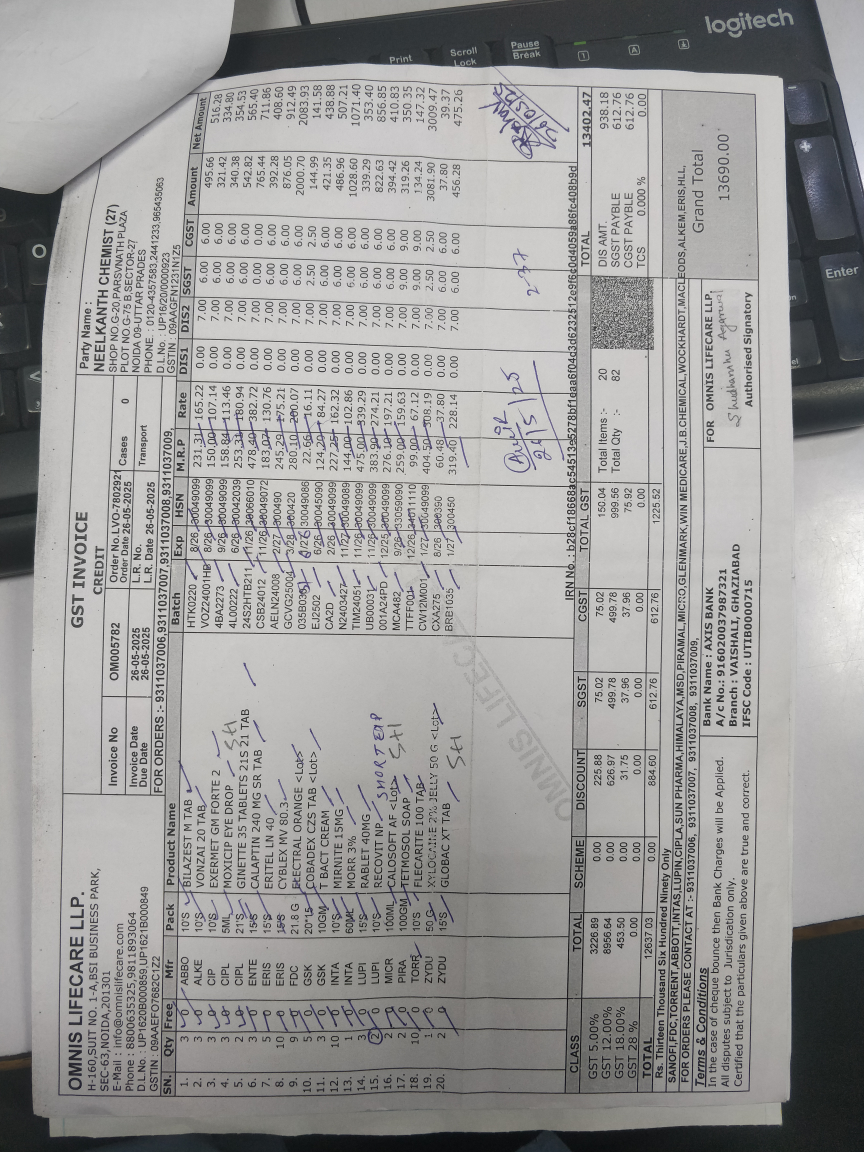 OMNIS LIFECARE LLP.
H-160,SUIT NO. 1-A,BSI BUSINESS PARK,
SEC-63,NOIDA,201301
E-Mail : info@omnislifecare.com
Phone : 8800635325,9811893064
D.L.No : UP1620B000859,UP1621B000849
GSTIN : 09AAEFO7682C1Z2
GST INVOICE
CREDIT
Invoice No OM005782 Order No. LVO-7802921 Cases 0
Order Date 26-05-2025
Invoice Date 26-05-2025 L.R. No. Transport
Due Date 26-05-2025 L.R. Date 26-05-2025
FOR ORDERS :- 9311037006,9311037007,9311037008,9311037009,
Party Name :
NEELKANTH CHEMIST (27)
SHOP NO.G-20,PARSVNATH PLAZA
PLOT NO.G-75 B,SECTOR-27
NOIDA 09-UTTAR PRADES
PHONE. : 0120-4357583,2441233,965435063
D.L.No : UP16/20/0000923
GSTIN : 09AAGFN1231N1Z5
SN. Qty Free Mfr Pack Product Name Batch Exp HSN M.R.P Rate DIS1 DIS2 SGST CGST Amount Net Amount
1. 3 0 ABBO 10'S BILAZEST M TAB HTK0220 8/26 30049099 231.31 165.22 0.00 7.00 6.00 6.00 495.66 516.28
2. 3 0 ALKE 10'S VONZAI 20 TAB VOZ24001HB 8/26 30049099 150.00 107.14 0.00 7.00 6.00 6.00 321.42 334.80
3. 3 0 CIP 10'S EXERMET GM FORTE 2 4BA2273 9/26 30049099 158.84 113.46 0.00 7.00 6.00 6.00 340.38 354.53
4. 3 0 CIPL 5ML MOXICIP EYE DROP 4L00222 6/26 30042039 253.31 180.94 0.00 7.00 6.00 6.00 542.82 565.40
5. 2 0 CIPL 21'S GINETTE 35 TABLETS 21S 21 TAB 24S2HTB211 11/26 30066010 382.72 0.00 7.00 0.00 0.00 765.44 711.86
6. 3 0 ENTE 15'S CALAPTIN 240 MG SR TAB CSB24012 11/26 30049072 130.76 0.00 7.00 6.00 6.00 392.28 408.60
7. 5 0 ERIS 15'S ERITEL LN 40 AELN24008 2/27 300490 245.29 175.21 0.00 7.00 6.00 6.00 876.05 912.49
8. 10 0 ERIS 15'S CYBLEX MV 80.3 GCVG25004 3/28 300420 280.10 200.07 0.00 7.00 6.00 6.00 2000.70 2083.93
9. 9 0 FDC 21.8 G ELECTRAL ORANGE <Lot> 30049086 22.66 16.11 0.00 7.00 2.50 2.50 144.99 141.58
10. 5 0 GSK 20*15 COBADEX CZS TAB <Lot> EJ2502 6/26 30045090 124.20 84.27 0.00 7.00 6.00 6.00 421.35 438.88
11. 3 0 GSK 10GM T BACT CREAM CA2D 2/26 30049099 227.25 162.32 0.00 7.00 6.00 6.00 486.96 507.21
12. 10 0 INTA 10'S MIRNITE 15MG N2403427 11/27 30049089 144.00 102.86 0.00 7.00 6.00 6.00 1028.60 1071.40
13. 1 0 INTA 60ML MORR 3% TIM24051 11/26 30049099 475.00 339.29 0.00 7.00 6.00 6.00 339.29 353.40
14. 3 0 LUPI 15'S RABLET 40MG UB00031 11/26 30049099 383.90 274.21 0.00 7.00 6.00 6.00 822.63 856.85
15. 2 0 LUPI 10'S RECOVIT NP SHORT EXP 001A24PD 12/25 30049099 276.10 197.21 0.00 7.00 6.00 6.00 394.42 410.83
16. 2 0 MICR 100ML CALOSOFT AF <Lot> MCA482 9/26 33059090 259.00 159.63 0.00 7.00 9.00 9.00 319.26 350.35
17. 2 0 PIRA 100GM TETMOSOL SOAP TTFF001 12/26 34011110 99.00 67.12 0.00 7.00 9.00 9.00 134.24 147.32
18. 10 0 TORR 10'S FLECARITE 100 TAB CW12M001 1/27 30049099 404.50 308.19 0.00 7.00 2.50 2.50 3081.90 3009.47
19. 1 0 ZYDU 50 G XYLOCAINE 2% JELLY 50 G <Lot> CXA275 8/26 300390 60.48 37.80 0.00 7.00 6.00 6.00 37.80 39.37
20. 2 0 ZYDU 15'S GLOBAC XT TAB BRB1035 1/27 300450 319.40 228.14 0.00 7.00 6.00 6.00 456.28 475.26
OMNIS LIFECA
26/5/25
2-37
26/05/25
IRN No. : b28cf18668ac54513e5278bf1eaa6f04c3d6232512e9f6c0d4059a86fc408b9d
CLASS TOTAL SCHEME DISCOUNT SGST CGST TOTAL GST
GST 5.00% 3226.89 0.00 225.88 75.02 75.02 150.04
GST 12.00% 8956.64 0.00 626.97 499.78 499.78 999.56
GST 18.00% 453.50 0.00 31.75 37.96 37.96 75.92
GST 28 % 0.00 0.00 0.00 0.00 0.00 0.00
TOTAL 12637.03 0.00 884.60 612.76 612.76 1225.52
Total Items :- 20
Total Qty :- 82
TOTAL 13402.47
DIS AMT. 938.18
SGST PAYBLE 612.76
CGST PAYBLE 612.76
TCS 0.000 % 0.00
Grand Total
13690.00
Rs. Thirteen Thousand Six Hundred Ninety Only
SANOFI,FDC,TORRENT,ABBOTT,INTAS,LUPIN,CIPLA,SUN PHARMA,HIMALAYA,MSD,PIRAMAL,MICRO,GLENMARK,WIN MEDICARE,J.B.CHEMICAL,WOCKHARDT,MACLEODS,ALKEM,ERIS,HLL,
FOR ORDERS PLEASE CONTACT AT :- 9311037006, 9311037007, 9311037008, 9311037009,
Terms & Conditions
In the case of cheque bounce then Bank Charges will be Applied.
All disputes subject to Jurisdication only.
Certified that the particulars given above are true and correct.
Bank Name : AXIS BANK
A/c No.: 916020037987321
Branch : VAISHALI, GHAZIABAD
IFSC Code : UTIB0000715
FOR OMNIS LIFECARE LLP.
Shudhanshu Agarwal
Authorised Signatory
logitech
Print
Scroll Lock
Pause Break
Enter